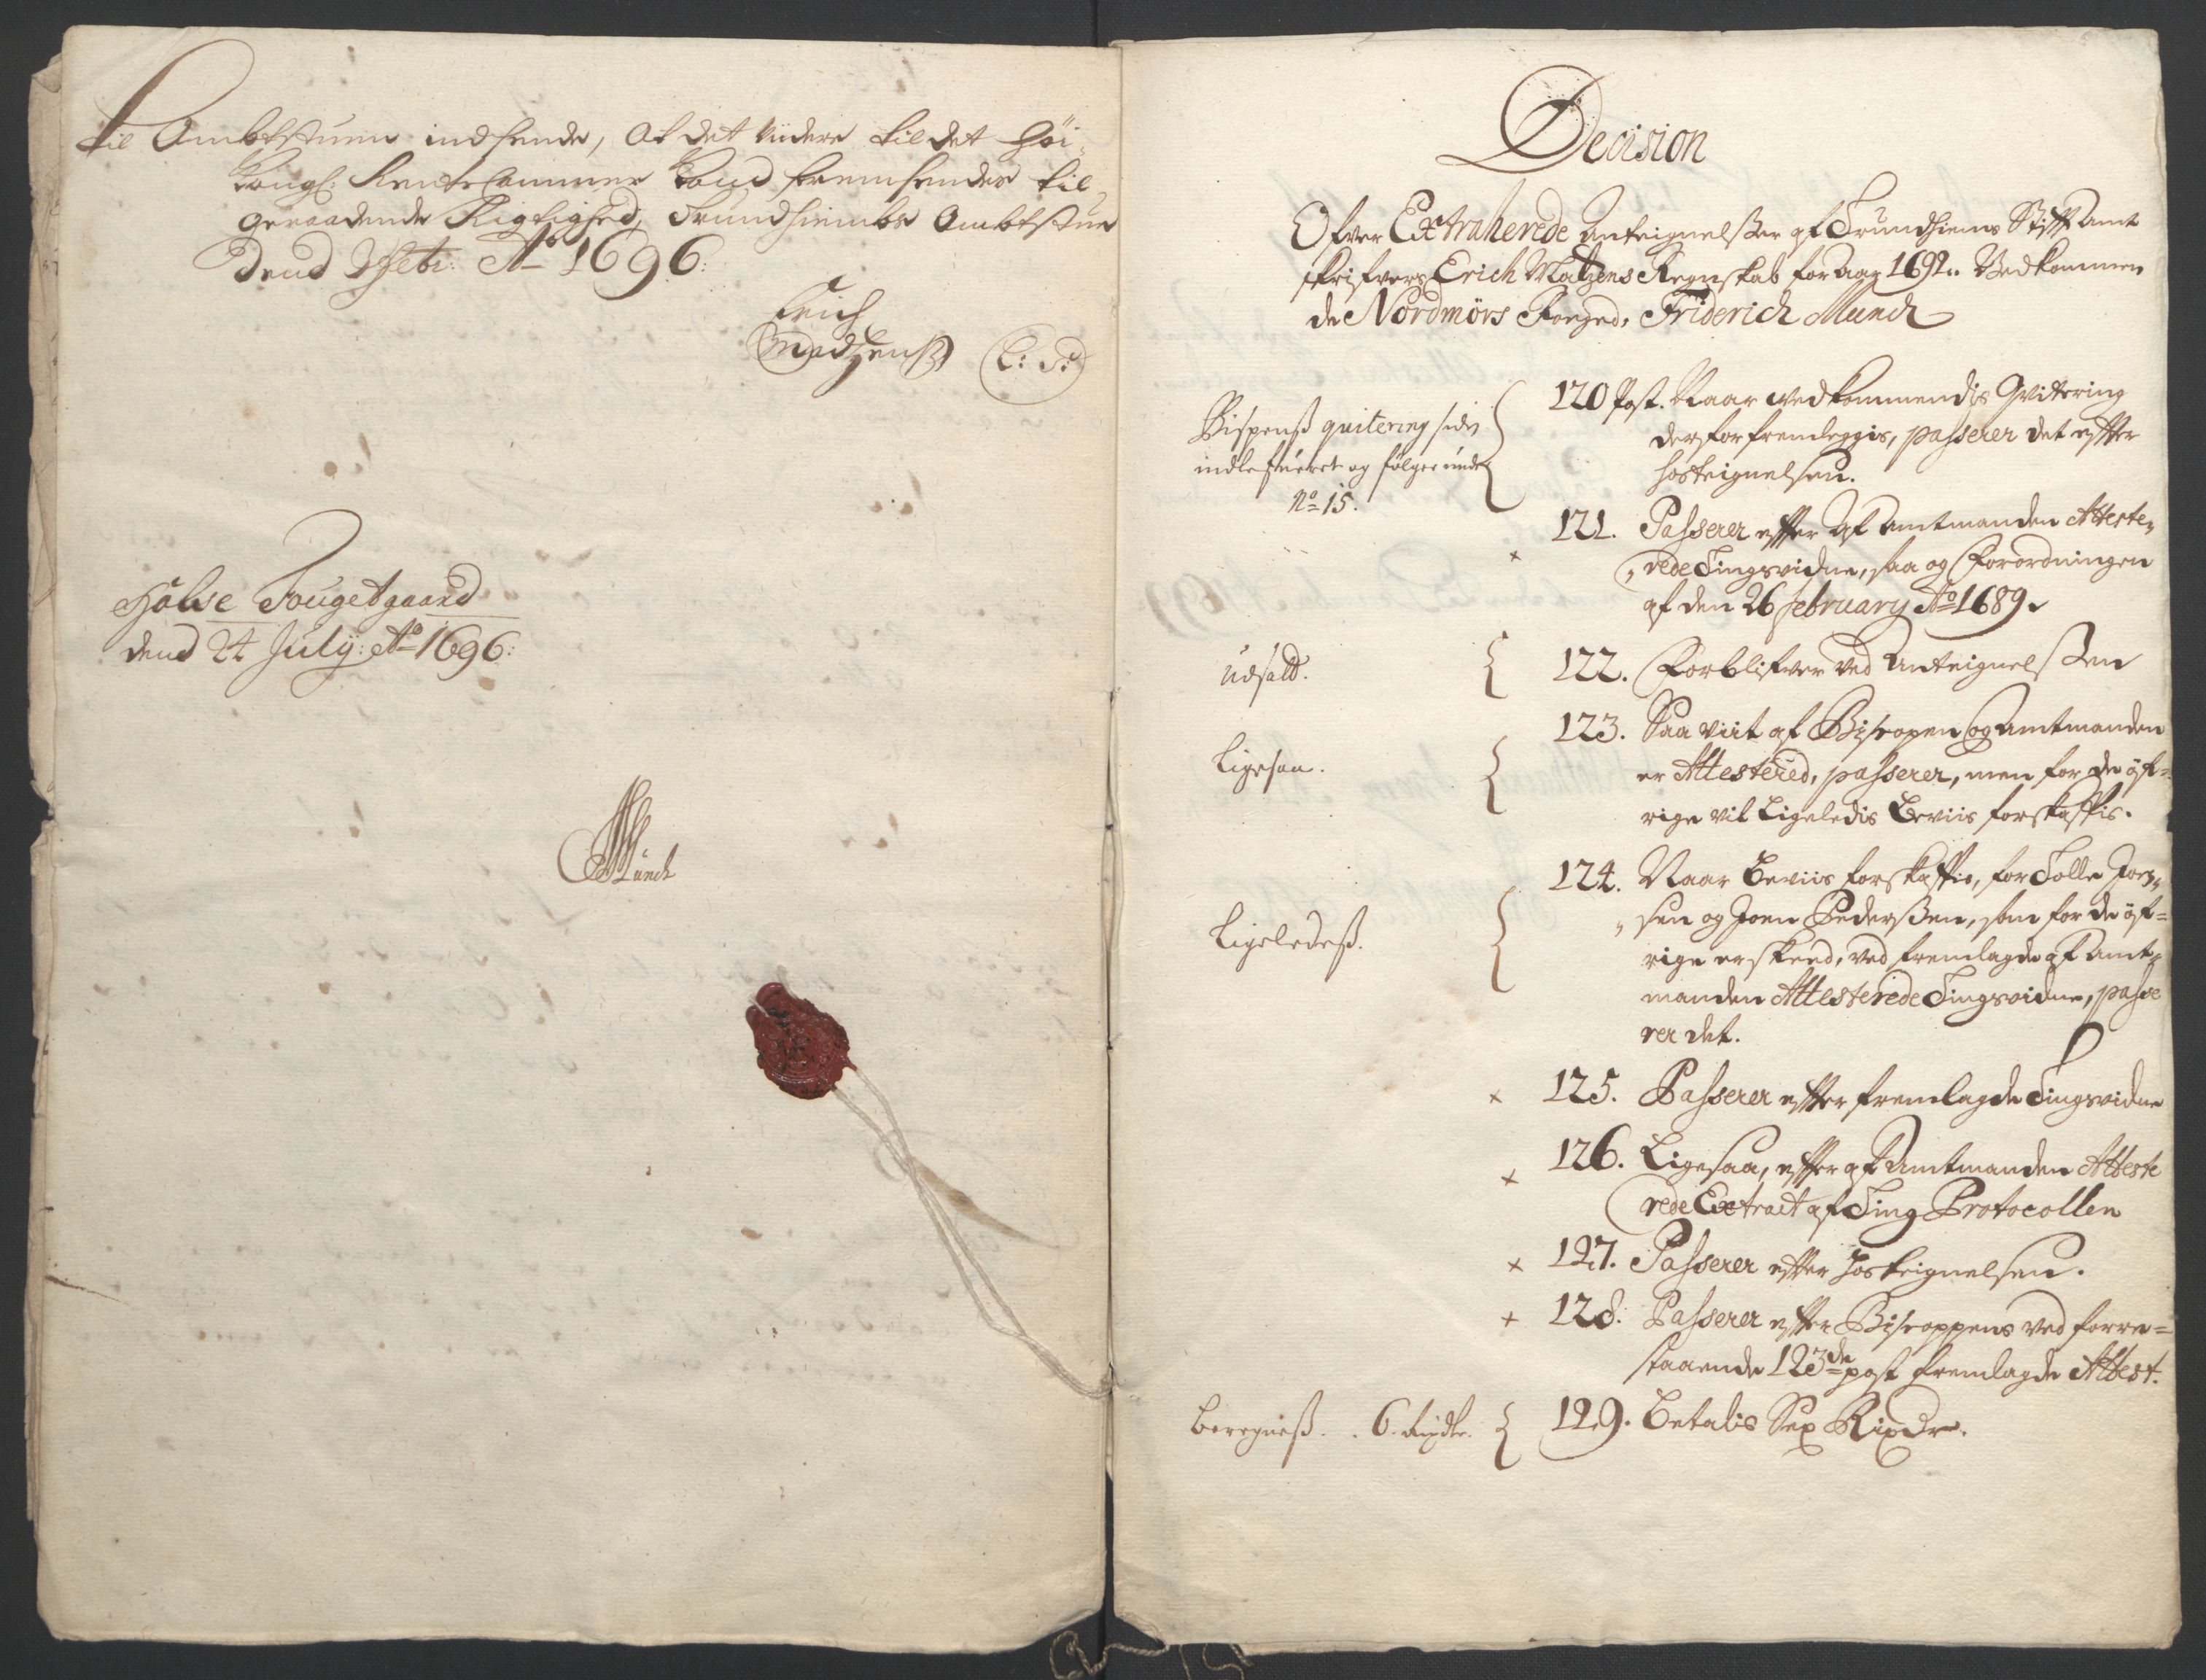 til Ambtstuen indsende, at det viidere til det høi-
Kongl: Rente Cammer kand fremsendes til-
geraadende Rigtighed, Trundhiembs Ambtstue
dend Febr: Ao 1696:
Erich
Madtzenss
Halse Fougetgaard
dend 24 July: Ao 1696:
Munch
Decision
Ofver Extraherede Anteignelsser af Trundhiems Stift Amt
skrifvers Erich Matzens Regnskab for aar 1692. Vedkommen
de Nordmørs Foeged, Friderich Munch
Bispenss quitering siden
indlefueret og følger under
No 15.
120 Post. Naar vedkommendis Qvitering
derfor fremleggis, passerer det effter
hosteignelsen.
× 121. Passerer effter af Amtmanden Atteste,,
,,rede Tingsvidne, saa og Forordningen
af den 26 february Ao 1689.
Udsatt.
122. Forblifver ved Anteignelssen
Ligesaa.
123. Saa viit af Biscopen og Amtmanden
er Attestered, passerer, men for de øf=
rige vil Ligeledis Beviis forskaffis.
Ligeledess.
124. Naar Beviis forskaffis, for Tolle Joen,,
,,sen og Joen Pederssen, som for de øf=
rige er skeed, ved fremlagde af Amt=
manden Attesterede Tingsvidne, passe
rer det.
× 125. Passerer effter fremlagde Tingsvidne
× 126. Ligesaa, effter af Amtmanden Atteste
rede Extract af Ting Protocollen
× 127. Passerer effter hosteignelsen.
+ 128. Passerer effter Biscoppens ved forre=
staaende 123de post fremlagde Attest.
beregniss. . 6. Rixdr.
129. Betalis Sex Rixdr.